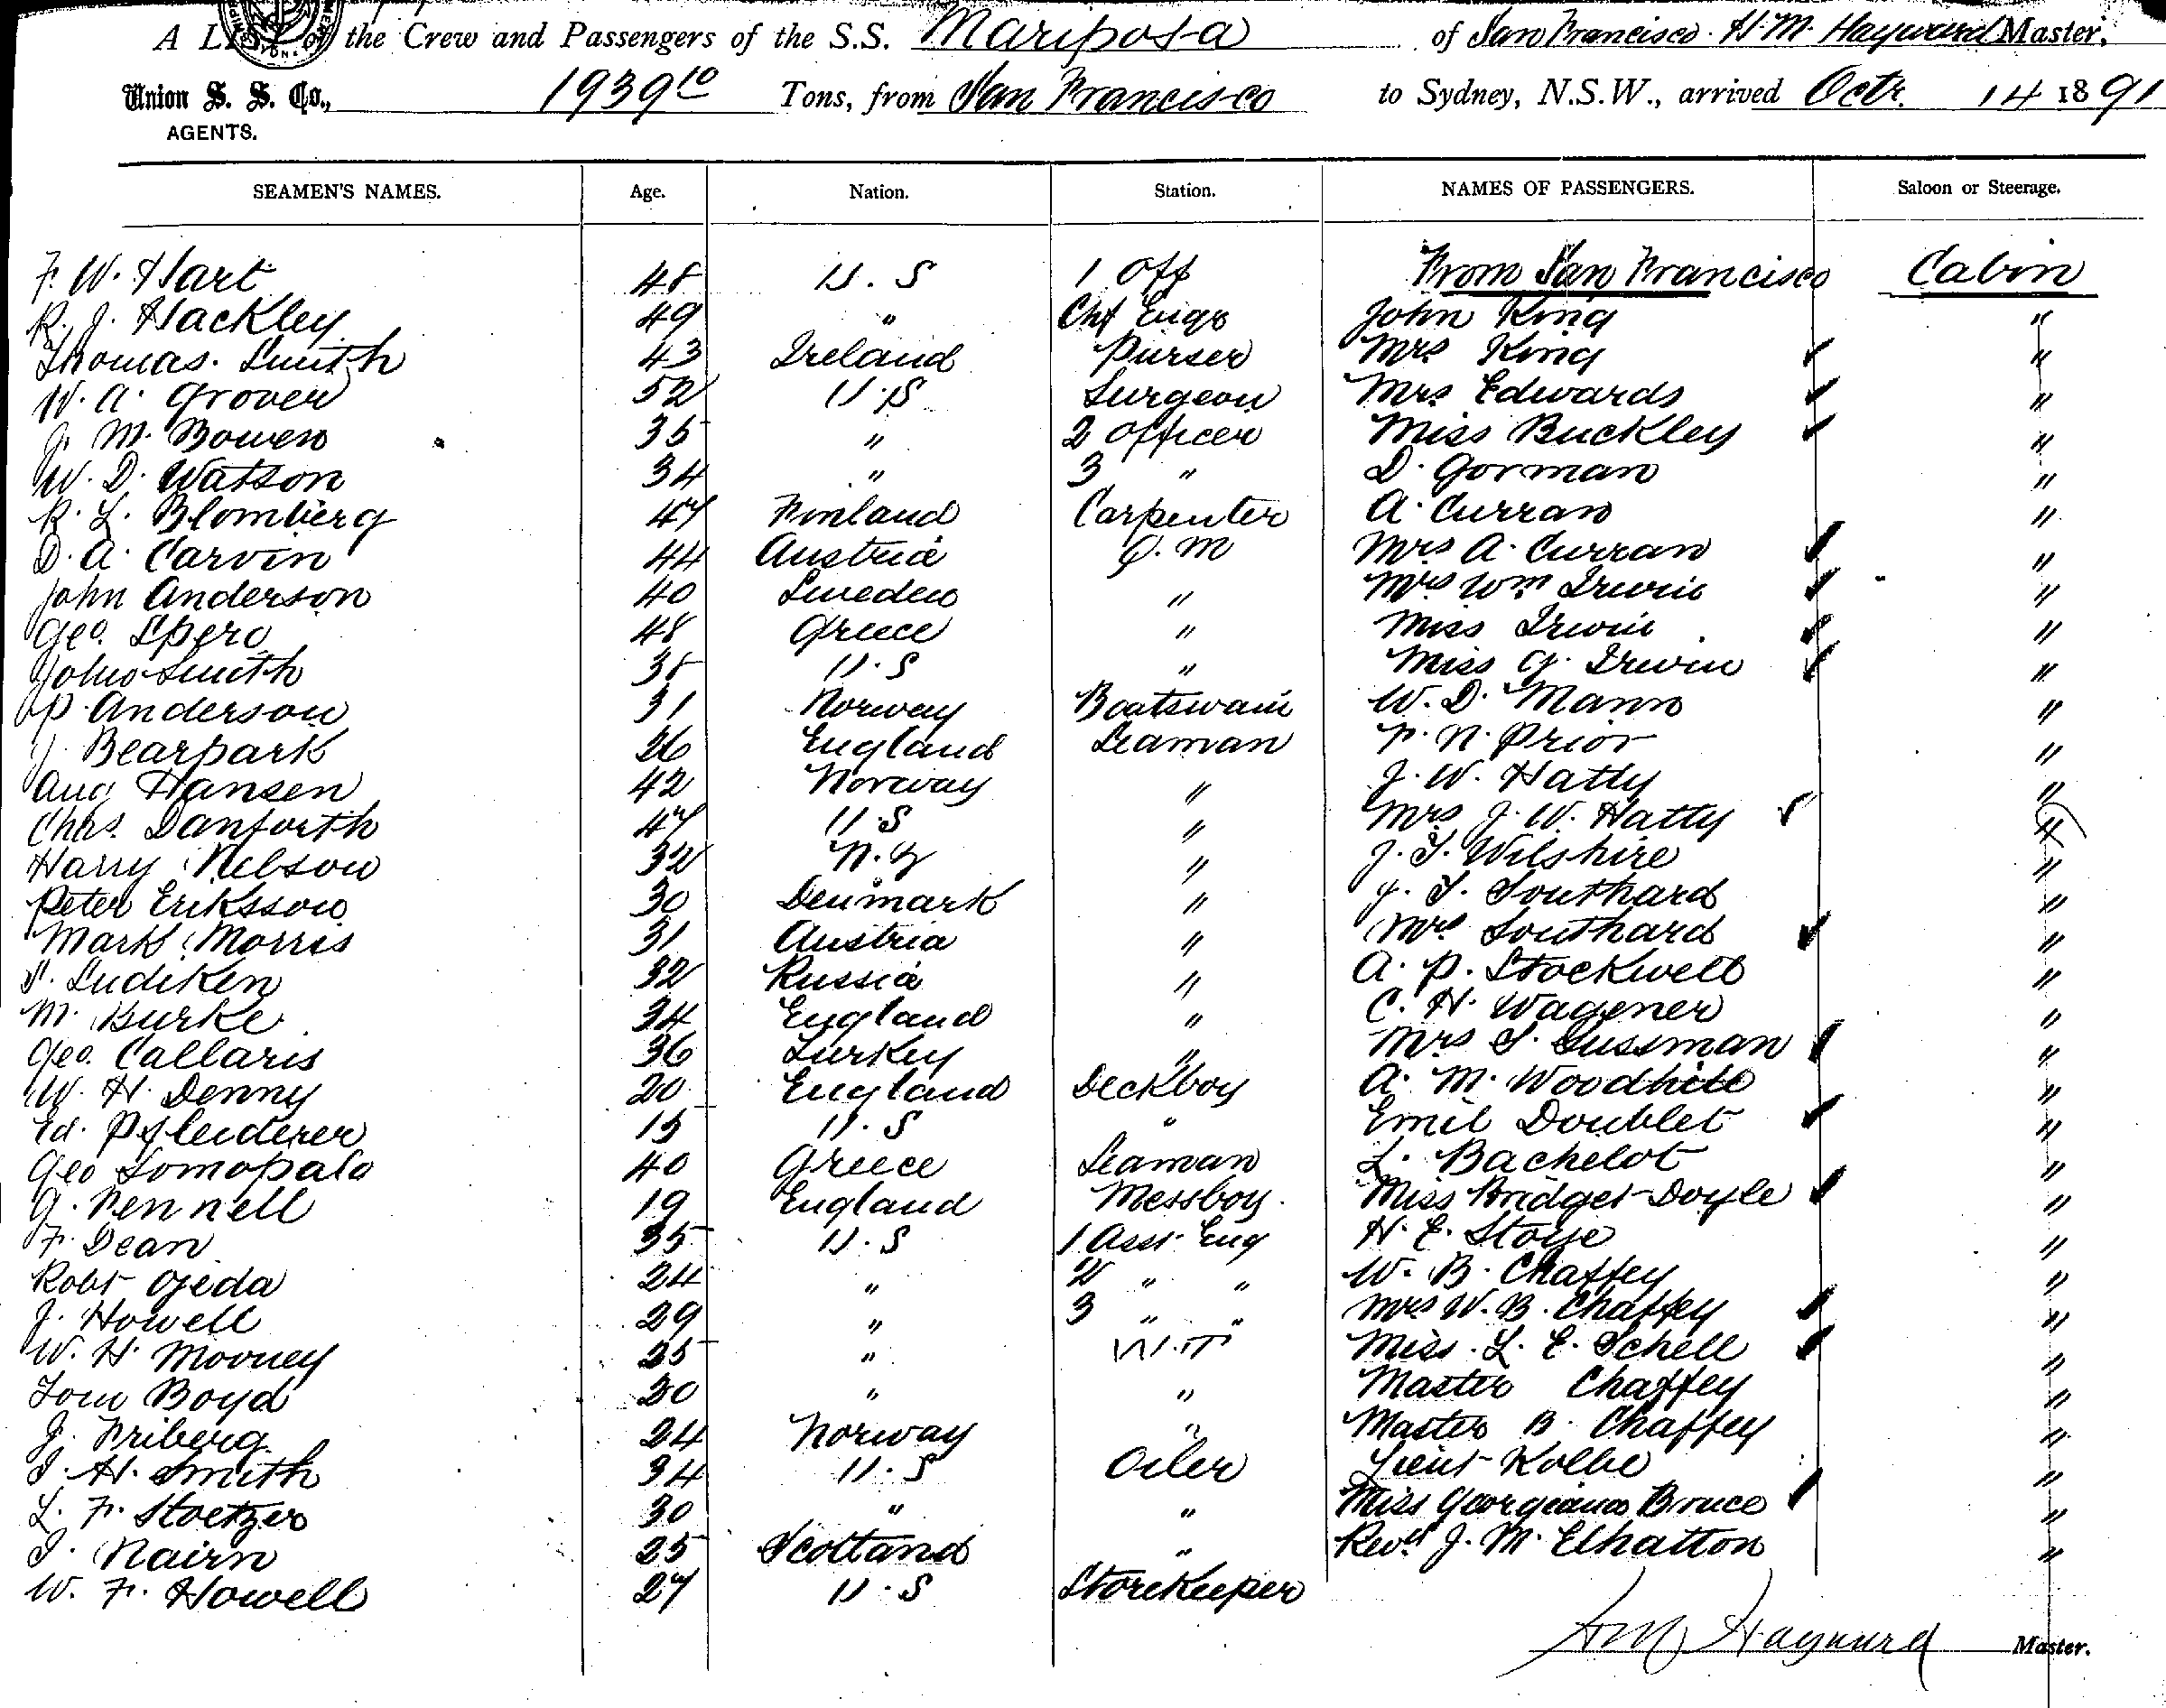 A LIST the Crew and Passengers of the S.S. Mariposa of San Francisco. H. M. Hayward Master,
Union S. S. Co., 1939 10 Tons, from San Francisco to Sydney, N.S.W., arrived Octr. 14 1891
AGENTS.
SEAMEN'S NAMES. Age. Nation. Station. NAMES OF PASSENGERS. Saloon or Steerage.
F. W. Hart 48 U. S 1 Off From San Francisco Cabin
R. J. Hackley 49 " Chf Engr John King "
Thomas. Smith 43 Ireland Purser Mrs King "
W. A. Grover 52 U. S Surgeon Mrs Edwards "
J. M. Bowen 35 " 2 Officer Miss Buckley "
W. D. Watson 34 " 3 " D. Gorman "
R. L. Blomberg 47 Finland Carpenter A. Curran "
D. A. Carvin 44 Austria Q. M Mrs A. Curran "
John Anderson 40 Sweden " Mrs Wm Irwin "
Geo. Spero 48 Greece " Miss Irwin "
John Smith 38 U. S " Miss G. Irwin "
P. Anderson 31 Norway Boatswain W. D. Mann "
J. Bearpark 26 England Seaman F. N. Prior "
Aug Hansen 42 Norway " J. W. Hatty "
Chas. Danforth 47 U. S " Mrs J. W. Hatty "
Harry Nelson 32 N. Z " J. T. Wilshire "
Peter Eriksson 30 Denmark " J. T. Southard "
Mark Morris 31 Austria " Mrs Southard "
Ludiken 32 Russia " A. P. Stockwell "
M. Burke 34 England " C. H. Wagener "
Geo. Callaris 36 Turkey " Mrs S. Sussman "
W. H. Denny 20 England Deckboy A. M. Woodhill "
Ed. Pfleiderer 15 U. S " Emil Doublet "
Geo Lomopalo 40 Greece Seaman L. Bachelot "
G. Pennell 19 England Messboy. Miss Bridget Doyle "
F. Dean 35 U. S 1 Asst. Eng H. E. Stoye "
Robt Ojeda 24 " 2 " " W. B. Chaffey "
J. Howell 29 " 3 " " Mrs W. B. Chaffey "
W. H. Mooney 25 " W. T Miss. L. E. Schell "
Tom Boyd 30 " " Master Chaffey "
J. Friberg 24 Norway " Master B. Chaffey "
J. H. Smith 34 U. S Oiler Lieut Kolbe "
L. F. Stoetzer 30 " " Miss Georgiana Bruce "
J. Nairn 25 Scotland " Revd. J. M. Elhatton "
W. F. Howell 27 U. S Storekeeper
H M Hayward Master.